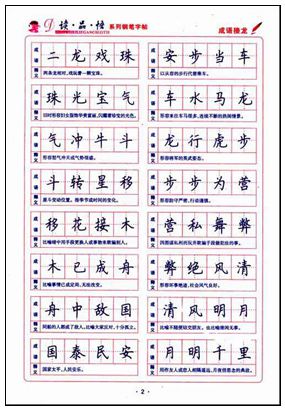 读·品·悟 系列钢笔字帖
成语接龙
成语 二龙戏珠
释义 两条龙相对，戏玩着一颗宝珠。
成语 珠光宝气
释义 旧时形容妇女服饰华贵富丽，闪耀着珍宝的光色。
成语 气冲牛斗
释义 形容怒气冲天或气势很盛。
成语 斗转星移
释义 星斗变动位置。指季节或时间的变化。
成语 移花接木
释义 比喻暗中用手段更换人或事物来欺骗别人。
成语 木已成舟
释义 比喻事情已成定局，无法改变。
成语 舟中敌国
释义 同船的人都成了敌人。比喻大家反对，十分孤立。
成语 国泰民安
释义 国家太平，人民安乐。
成语 安步当车
释义 以从容的步行代替乘车。
成语 车水马龙
释义 形容来往车马很多，连续不断的热闹情景。
成语 龙行虎步
释义 形容将军的英武姿态。
成语 步步为营
释义 形容防守严密，行动谨慎。
成语 营私舞弊
释义 因图谋私利而玩弄欺骗手段做犯法的事。
成语 弊绝风清
释义 形容坏事绝迹，社会风气良好。
成语 清风明月
释义 比喻不随便结交朋友。也比喻清闲无事。
成语 月明千里
释义 用作友人或恋人相隔遥远，月夜倍思念的典故。
·2·